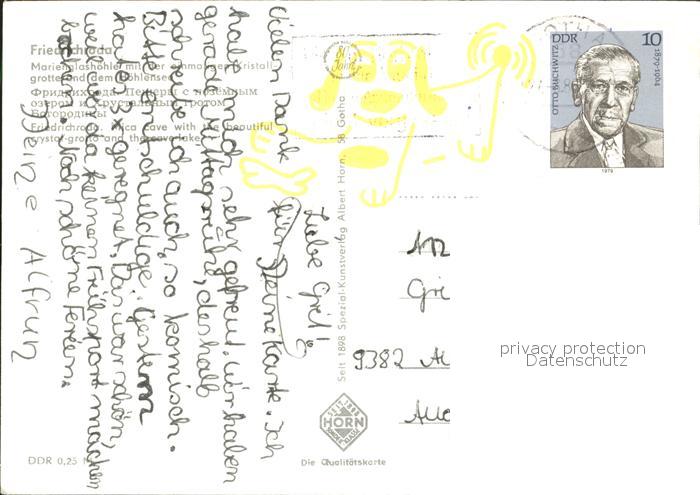 Friedrichroda
Marienglashöhle mit der einmaligen Kristall-
grotte und dem Höhlensee
Фридрихрода. Пещеры с подземным
озером и хрустальным гротом
Богородицы
Friedrichroda. Mica cave with the beautiful
crystal-grotto and the cave-lake
Liebe Gret!
Vielen Dank für Deine Karte. Ich
habe mich sehr gefreut. Wir haben
gerade Mittagsruhe, deshalb
schreibe ich auch so komisch.
Bitte entschuldige. Gestern
hat es geregnet. Das war schön,
weil wir da keinen Frühsport machen
Noch schöne Ferien.
Deine Alfrun
DDR 0,25 M
Seit 1898 Spezial-Kunstverlag Albert Horn, 58 Gotha
SEIT 1898
HORN
Die Qualitätskarte
84
Jahre
DDR 10
OTTO BUCHWITZ 1879-1964
1979
An
Gri
9382
privacy protection
Datenschutz